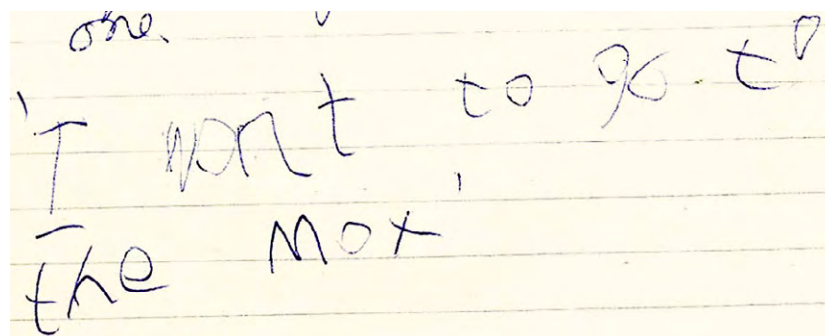 one.
'I wont to go to
the Mox'